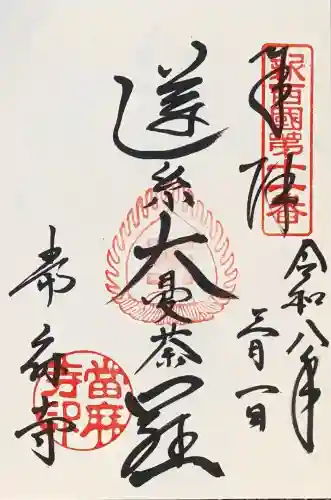 奉拝
新西國第十一番
令和八年
三月一日
蓮糸大曼荼羅
當麻寺
當麻寺印